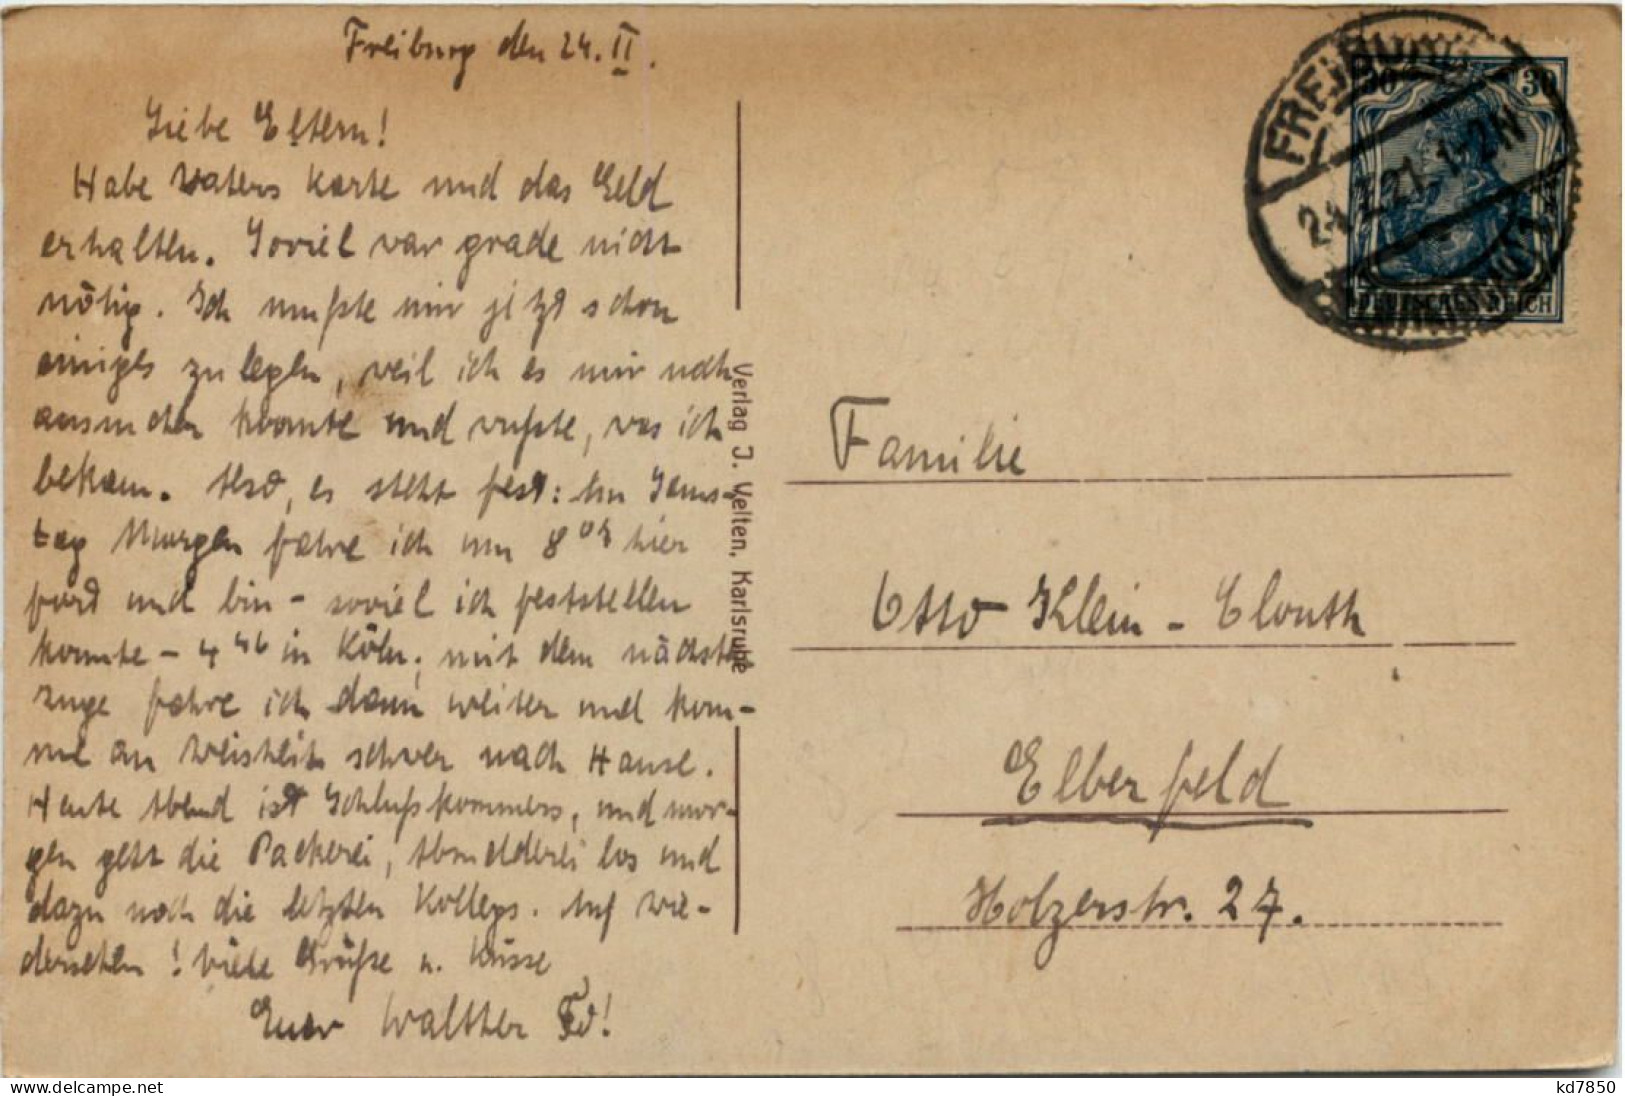 Freiburg den 24. II.
Liebe Eltern!
Habe Vaters Karte und das Geld
erhalten. Soviel war grade nicht
nötig. Ich mußte mir jetzt schon
einiges zulegen, weil ich es mir noch
aussuchen konnte und wußte, was ich
bekam. Also, es steht fest: Am Sams-
tag Morgen fahre ich um 8 hier
fort und bin - soviel ich feststellen
konnte - 4 46 in Köln; mit dem nächsten
Zuge fahre ich dann weiter und kom-
me an Weisheit schwer nach Hause.
Heute Abend ist Schlußkommers, und mor-
gen geht die Packerei, Abmelderei los und
dazu noch die letzten Kollegs. Auf Wie-
dersehen! Viele Grüße u. Küsse
Euer Walther
Verlag J. Velten, Karlsruhe
FREIBURG
24.2.21. 1-2N
30 30
DEUTSCHES REICH
Familie
Otto Klein-Clouth
Elberfeld
Holzerstr. 27.
kd7850
www.delcampe.net